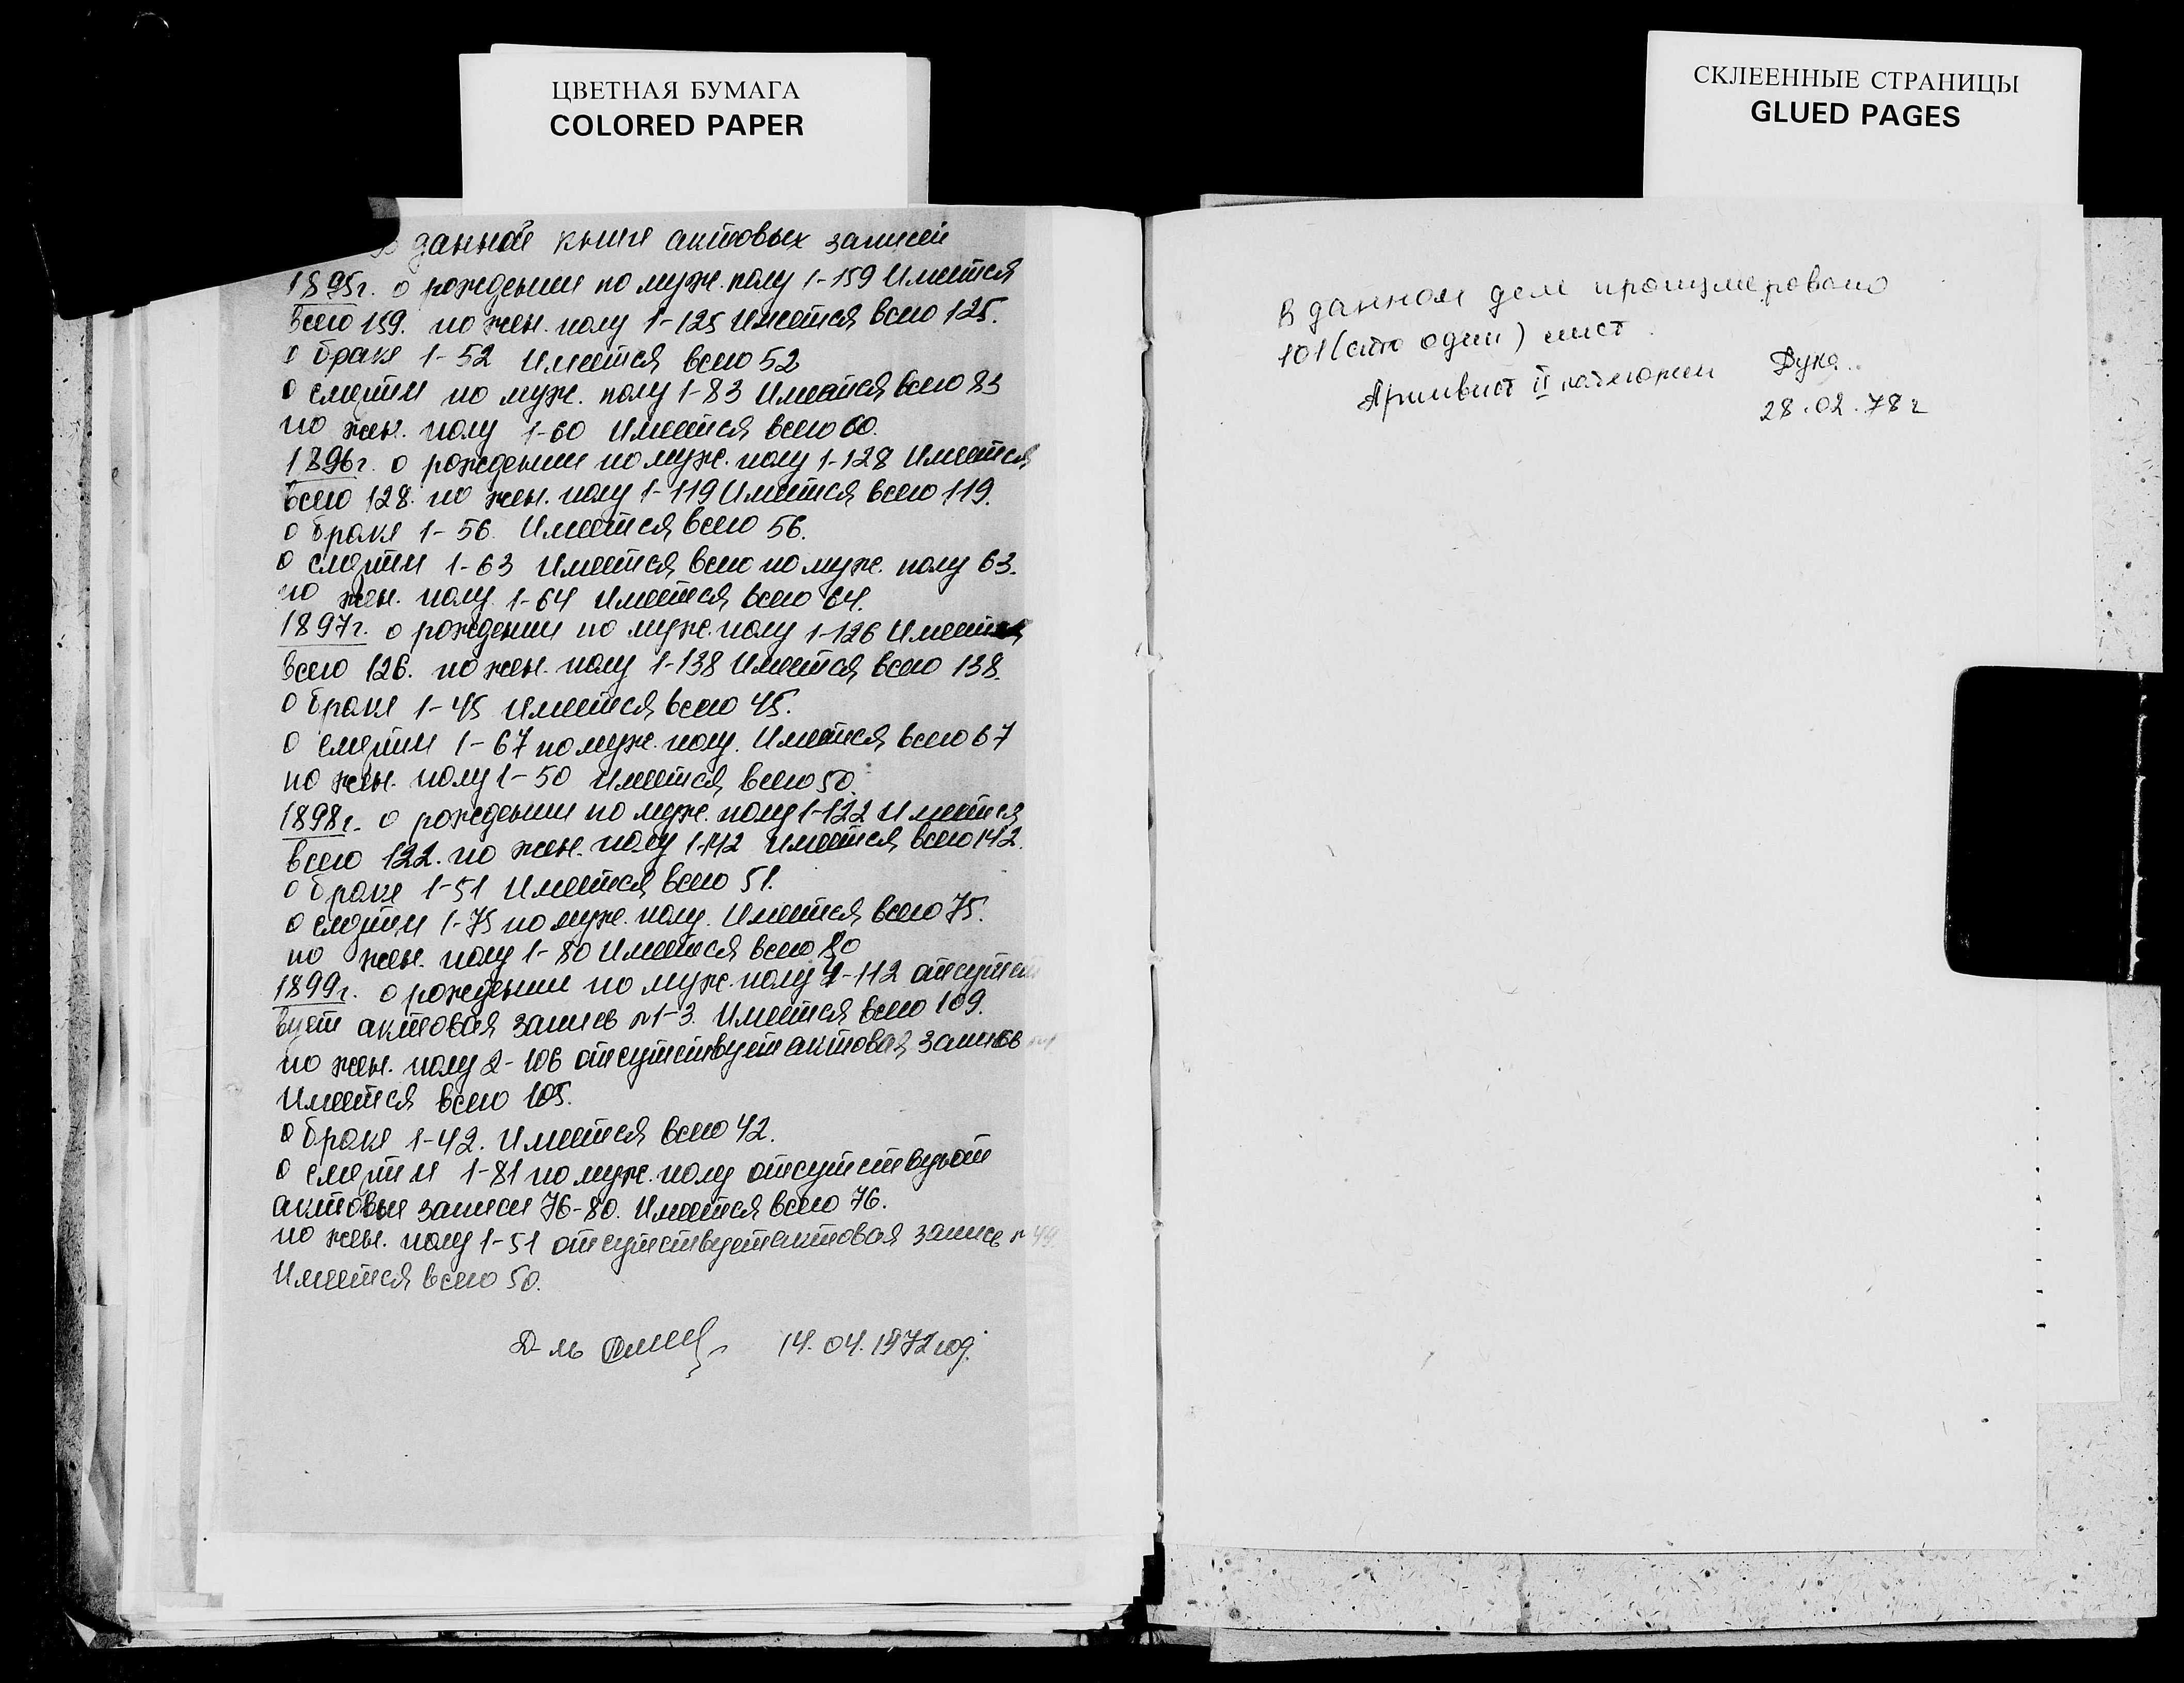 ЦВЕТНАЯ БУМАГА
COLORED PAPER
В данной книге актовых записей
1895г. о рождении по муж. полу 1-159 Имеется
всего 159. по жен. полу 1-125 Имеется всего 125.
о браке 1-52 Имеется всего 52
о смерти по муж. полу 1-83 Имеется всего 83
по жен. полу 1-60 Имеется всего 60.
1896г. о рождении по муж. полу 1-128 Имеется
всего 128. по жен. полу 1-119 Имеется всего 119.
о браке 1-56. Имеется всего 56.
о смерти 1-63 Имеется всего по муж. полу 63.
по жен. полу 1-64 Имеется всего 64.
1897г. о рождении по муж. полу 1-126 Имеется
всего 126. по жен. полу 1-138 Имеется всего 138.
о браке 1-45 Имеется всего 45.
о смерти 1-67 по муж. полу. Имеется всего 67
по жен. полу 1-50 Имеется всего 50.
1898г. о рождении по муж. полу 1-122 Имеется
всего 122. по жен. полу 1-142 Имеется всего 142.
о браке 1-51 Имеется всего 51.
о смерти 1-75 по муж. полу. Имеется всего 75.
по жен. полу 1-80 Имеется всего 80
1899г. о рождении по муж. полу 1-112 отсутст
вует актовая запись №1-3. Имеется всего 109.
по жен. полу 2-106 отсутствует актовая запись
Имеется всего 105.
о браке 1-42. Имеется всего 42.
о смерти 1-81 по муж. полу отсутствуют
актовые записи 76-80. Имеется всего 76.
по жен. полу 1-51 отсутствует актовая запись № 49
Имеется всего 50.
Д-ль 14.04.1972 год.
СКЛЕЕННЫЕ СТРАНИЦЫ
GLUED PAGES
В данном деле пронумеровано
101 (сто один) лист.
Архивист II категории Дука
28.02.78г